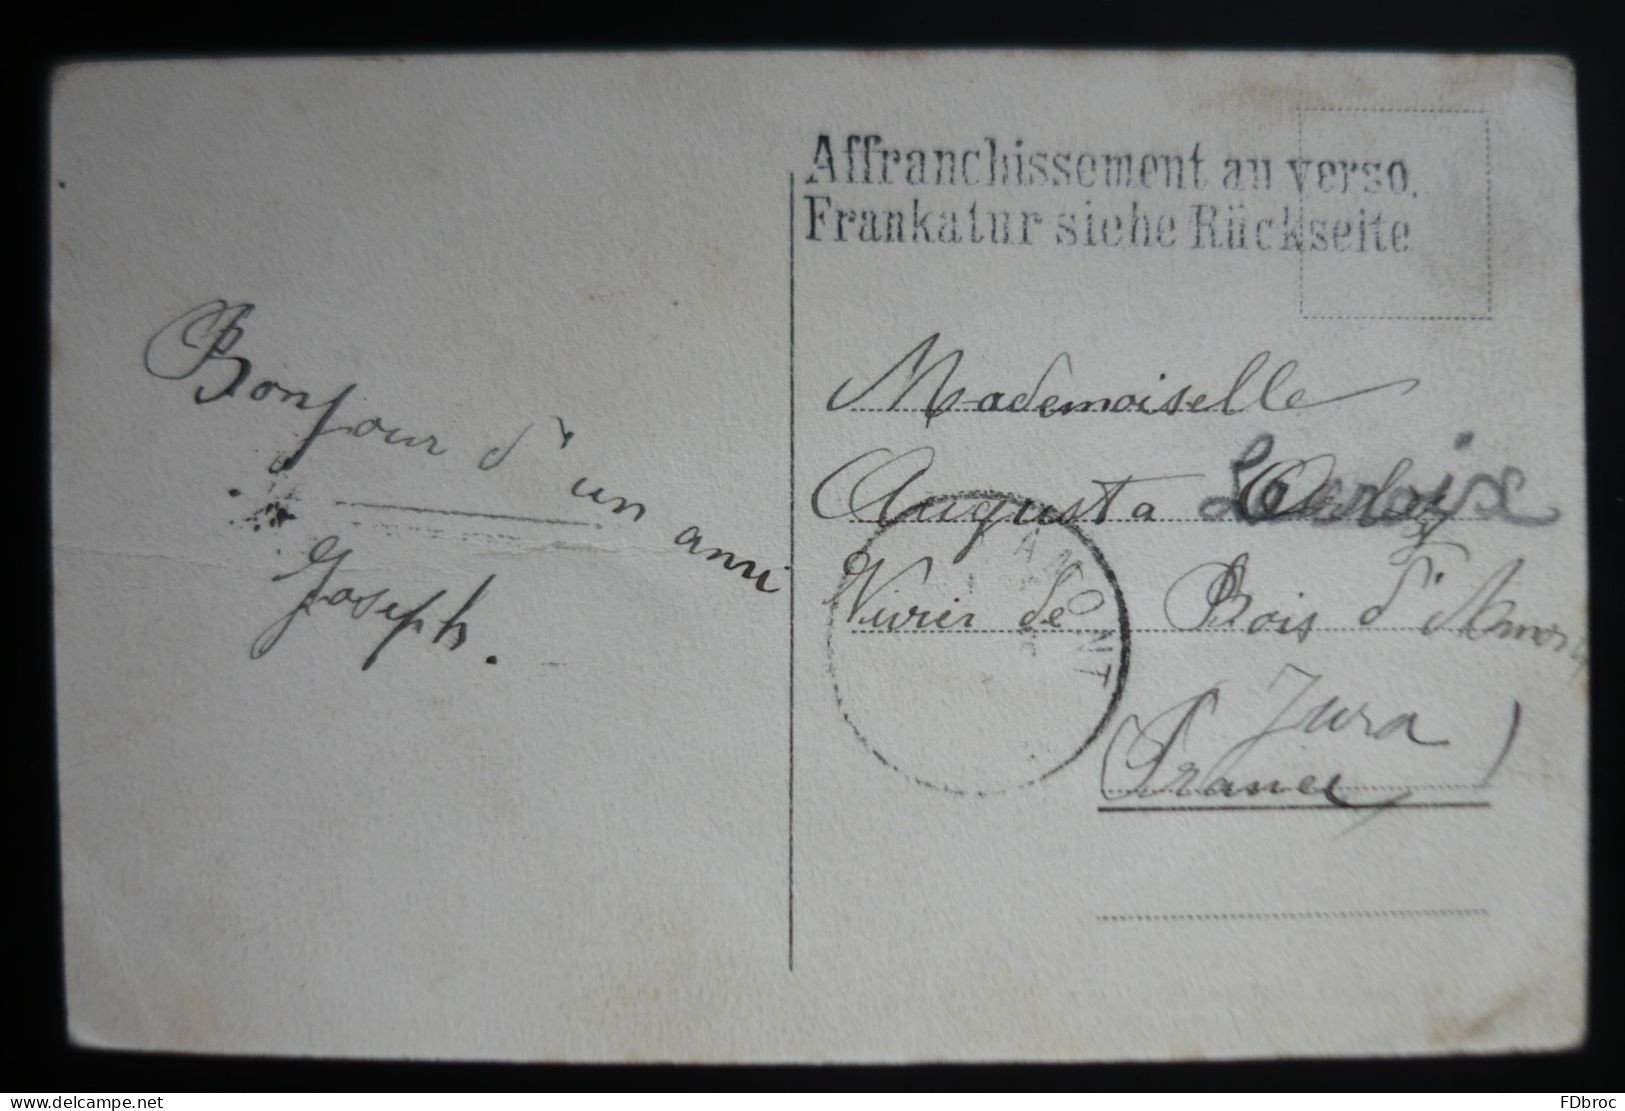 Affranchissement au verso.
Frankatur siehe Rückseite
Bonjour d'un ami
Joseph.
Mademoiselle
Augusta Lacroix
Vivier de Bois d'Amont
Jura
(France)
AMONT
FDbroc